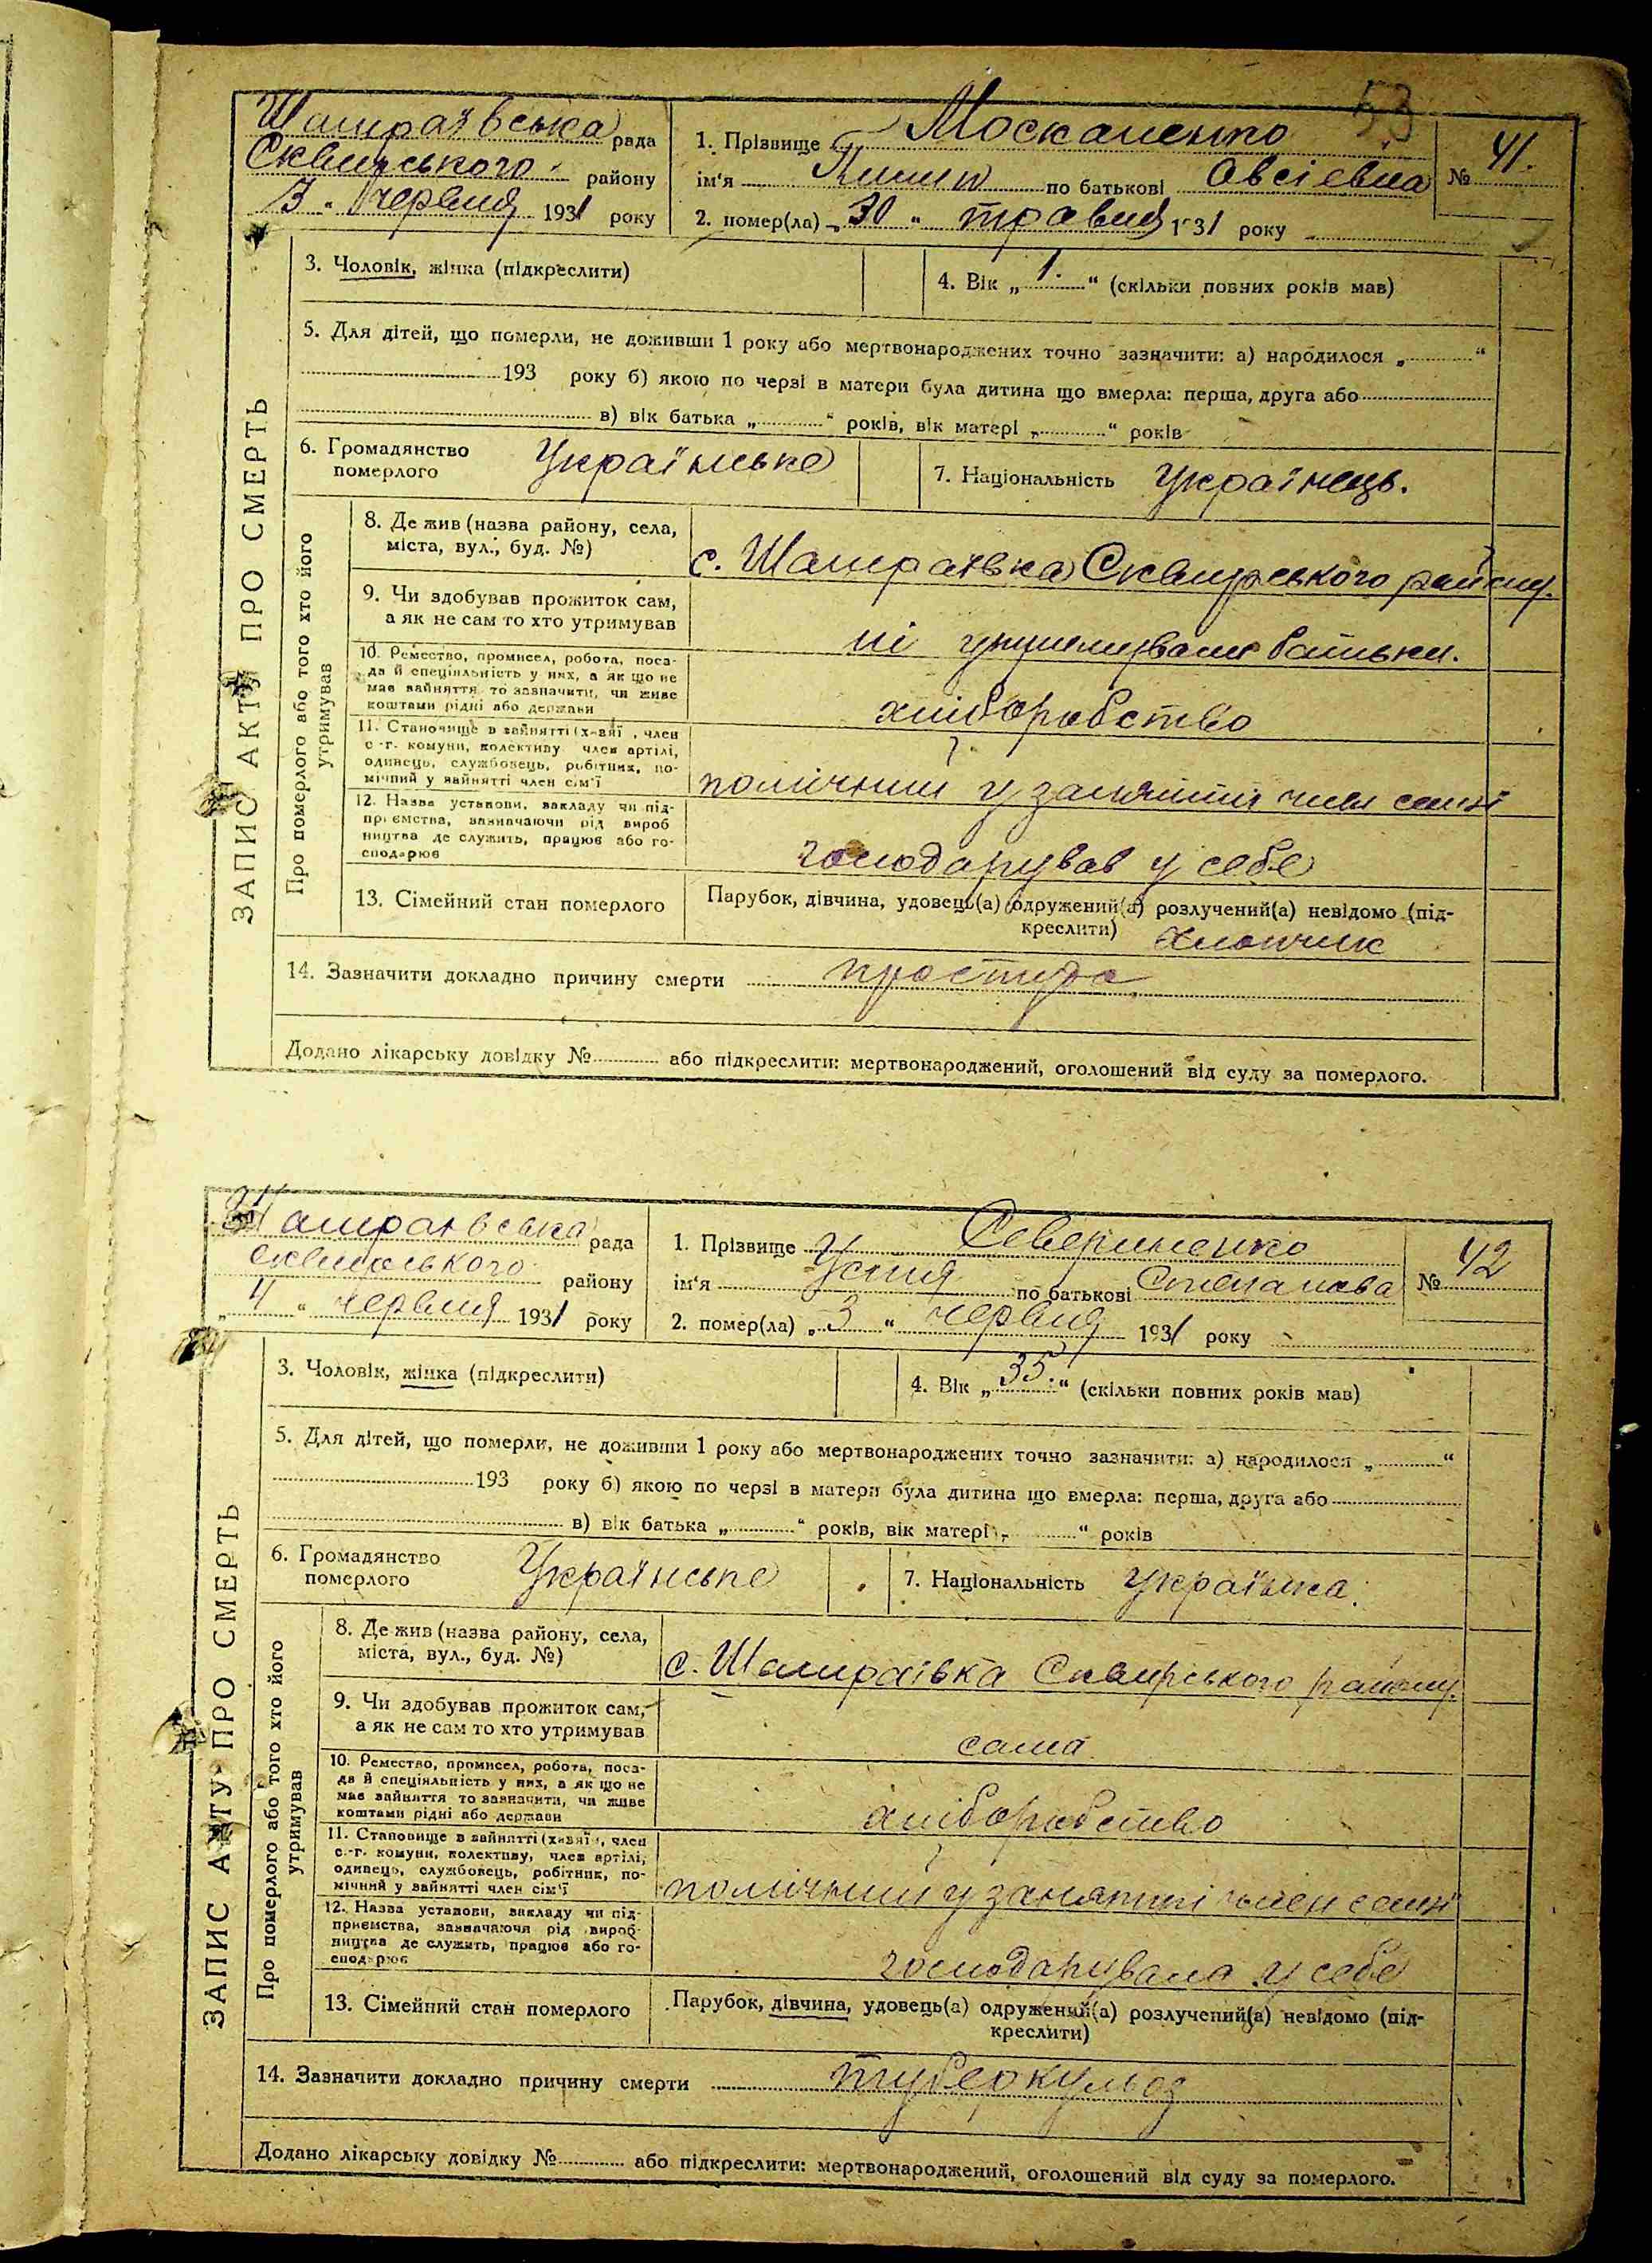 53
Шамраївська рада
Сквирського району
"3" червня 1931 року
1. Прізвище Москаленко
ім'я по батькові Овсієвна
№ 41.
2. помер(ла) „30“ травня 1931 року
ЗАПИС АКТУ ПРО СМЕРТЬ
3. Чоловік, жінка (підкреслити)
4. Вік „1.“ (скільки повних років мав)
5. Для дітей, що померли, не доживши 1 року або мертвонароджених точно зазначити: а) народилося „ “
193 року б) якою по черзі в матери була дитина що вмерла: перша, друга або
в) вік батька „ “ років, вік матері „ “ років
6. Громадянство померлого Українське
7. Національність Українець.
Про померлого або того хто його утримував
8. Де жив (назва району, села,
міста, вул., буд. №)
с. Шамраївка Сквирського району.
9. Чи здобував прожиток сам,
а як не сам то хто утримував
ні утримували батьки.
10. Ремество, промисел, робота, поса-
да й спеціяльність у них, а як що не
має зайняття то зазначити, чи живе
коштами рідні або держави
хліборобство
11. Становище в зайнятті (х-вяї, член
с-г. комуни, колективу член артілі,
одинець, службовець, робітник, по-
мічний у зайнятті член сім'ї
помічний у занятті член семні
12. Назва установи, закладу чи під-
приємства, зазначаючи рід вироб
ництва де служить, працює або го-
сподарює
господарував у себе
13. Сімейний стан померлого
Парубок, дівчина, удовець(а) одружений(а) розлучений(а) невідомо (під-
креслити) хлопчик
14. Зазначити докладно причину смерти простуда
Додано лікарську довідку № або підкреслити: мертвонароджений, оголошений від суду за померлого.
Шамраївська рада
Сквирського району
„4“ червня 1931 року
1. Прізвище Севериненко
ім'я Устя по батькові Степанова
№ 42
2. помер(ла) „3“ червня 1931 року
ЗАПИС АКТУ ПРО СМЕРТЬ
3. Чоловік, жінка (підкреслити)
4. Вік „35.“ (скільки повних років мав)
5. Для дітей, що померли, не доживши 1 року або мертвонароджених точно зазначити: а) народилося „ “
193 року б) якою по черзі в матери була дитина що вмерла: перша, друга або
в) вік батька „ “ років, вік матері „ “ років
6. Громадянство померлого Українське
7. Національність Українка.
Про померлого або того хто його утримував
8. Де жив (назва району, села,
міста, вул., буд. №)
с. Шамраївка Сквирського району.
9. Чи здобував прожиток сам,
а як не сам то хто утримував
сама
10. Ремество, промисел, робота, поса-
да й спеціяльність у них, а як що не
має зайняття то зазначити, чи живе
коштами рідні або держави
хліборобство
11. Становище в зайнятті (х-вяї, член
с.-г. комуни, колективу, член артілі,
одинець, службовець, робітник, по-
мічний у зайнятті член сім'ї
помічний у занятті член семні
12. Назва установи, закладу чи під-
приємства, зазначаючи рід вироб-
ництва де служить, працює або го-
сподарює
господарувала у себе
13. Сімейний стан померлого
Парубок, дівчина, удовець(а) одружений(а) розлучений(а) невідомо (під-
креслити)
14. Зазначити докладно причину смерти туберкульоз
Додано лікарську довідку № або підкреслити: мертвонароджений, оголошений від суду за померлого.